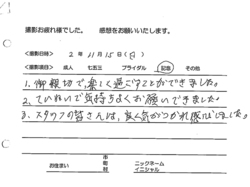 撮影お疲れ様でした。 感想をお願いいたします。
<撮影日時> 2 年 11月 15日(日)
<撮影項目> 成人 七五三 ブライダル 記念 その他
1. 御親切で楽しく過ごすことができました。
2. ていねいで気持ちよくお願いできました。
3. スタッフの皆さんは、良く気がつかれ感じました。
お住まい
市
町
村
ニックネーム
イニシャル